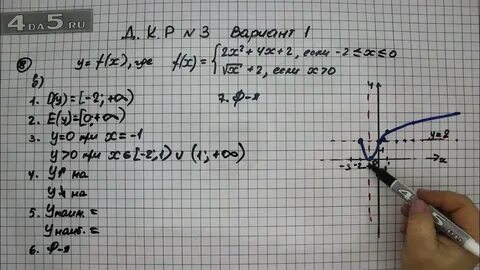 4DA5.RU
Д.К.Р №3 Вариант 1
⑧ y=f(x), где f(x)={ 2x²+4x+2, если -2≤x≤0
√x+2, если x>0
в)
1. D(y)=[-2;+∞)
2. E(y)=[0;+∞)
3. y=0 при x=-1
y>0 при x∈[-2;1) ∪ (1;+∞)
4. y↑ на
y↓ на
5. yнаим.=
yнаиб.=
6. Ф-я
7. Ф-я
y
y=2
-3 -2
x